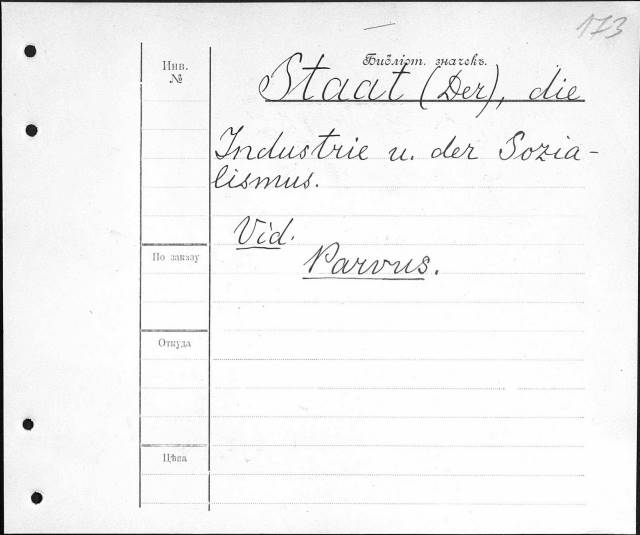 173
Бібліот. значекъ.
Инв.
№
Staat (Der), die
Industrie u. der Sozia-
lismus.
Vid.
Parvus.
По заказу
Откуда
Цѣна